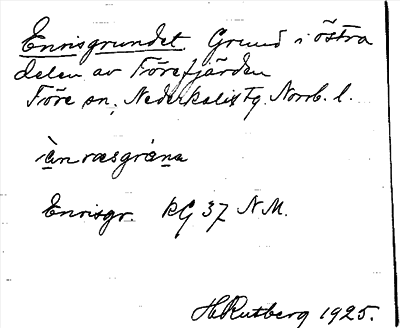 Enrisgrundet. Grund i östra
delen av Törefjärden
Töre sn, Nederkalix Tg. Norrb. l.
Enrisgr. KG 37 N.M.
H. Rutberg 1925.